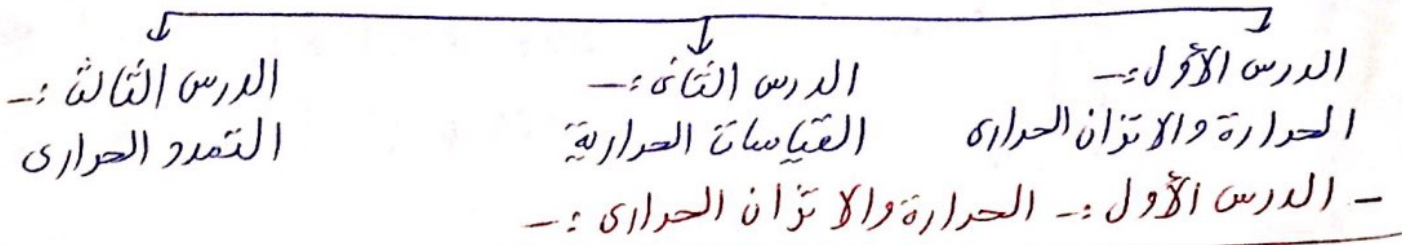 الدرس الأول :-
الحرارة والاتزان الحرارى
الدرس الثانى :-
القياسات الحرارية
الدرس الثالث :-
التمدد الحرارى
- الدرس الأول :- الحرارة والاتزان الحرارى :-